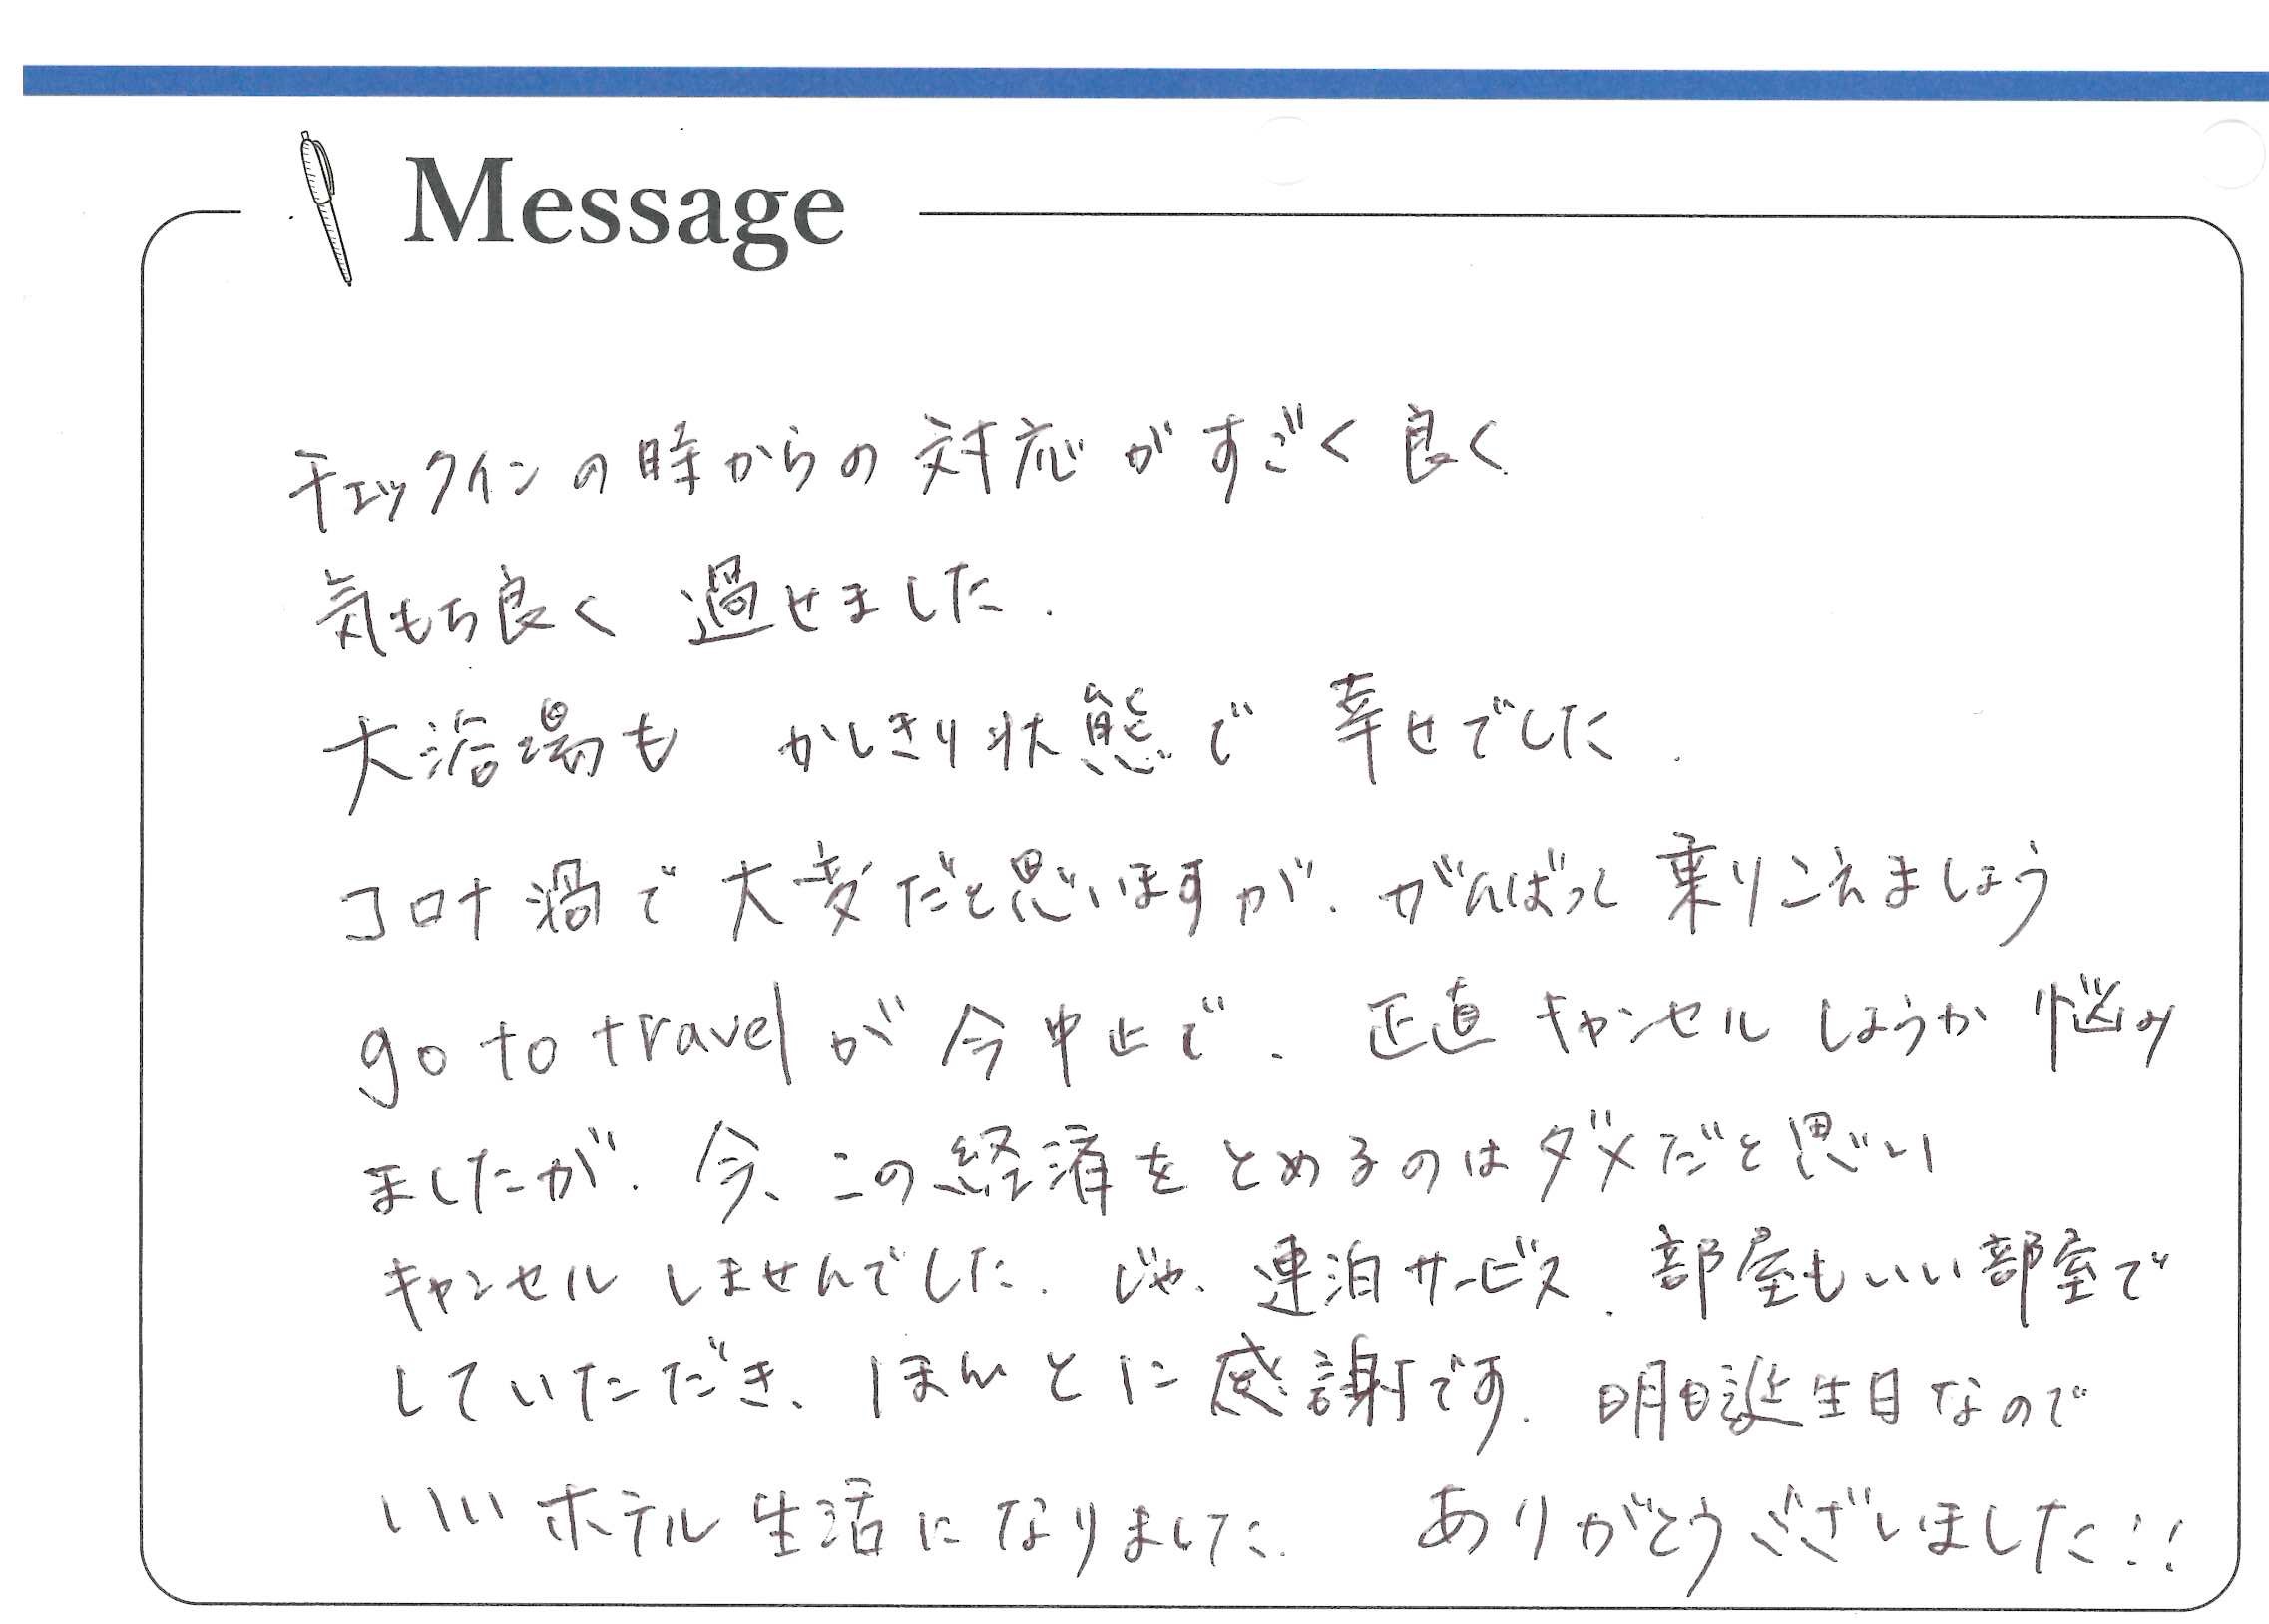 Message
チェックインの時からの対応がすごく良く
気もち良く 過せました.
大浴場も かしきり状態で 幸せでした.
コロナ渦で大変だと思いますが、がんばって乗りこえましょう
go to travelが今中止で、正直キャンセルしようか悩み
ましたが、今、この経済をとめるのはダメだと思い
キャンセルしませんでした. 連泊サービス、部屋もいい部屋で
していただき、ほんとに感謝です. 明日誕生日なので
いいホテル生活になりました. ありがとうございました!!